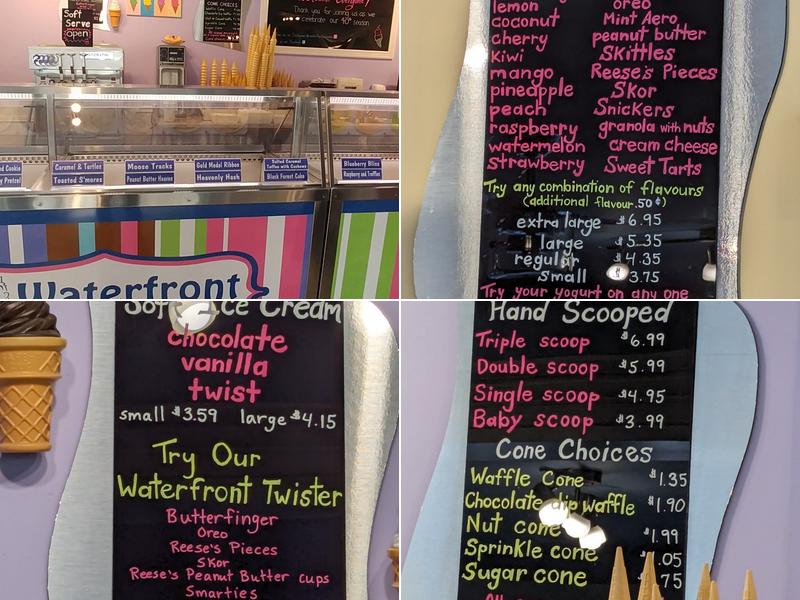 Soft
Serve
open
CONE CHOICES
Thank you for joining us as we
celebrate our 40th season
Caramel & Turtles
Toasted S'mores
Moose Tracks
Peanut Butter Heaven
Gold Medal Ribbon
Heavenly Hash
Salted Caramel
Toffee with Cashews
Black Forest Cake
Blueberry Bliss
Raspberry and Truffles
Waterfront
lemon oreo
coconut Mint Aero
cherry peanut butter
Kiwi Skittles
mango Reese's Pieces
pineapple Skor
peach Snickers
raspberry granola with nuts
watermelon cream cheese
strawberry Sweet Tarts
Try any combination of flavours
(additional flavour .50¢)
extra large $6.95
large $5.35
regular $4.35
small $3.75
Try your yogurt on any one
Soft Ice Cream
chocolate
vanilla
twist
small $3.59 large $4.15
Try Our
Waterfront Twister
Butterfinger
Oreo
Reese's Pieces
Skor
Reese's Peanut Butter cups
Smarties
Hand Scooped
Triple scoop $6.99
Double scoop $5.99
Single scoop $4.95
Baby scoop $3.99
Cone Choices
Waffle Cone $1.35
Chocolate dip waffle $1.90
Nut cone $1.99
Sprinkle cone .05
Sugar cone .75